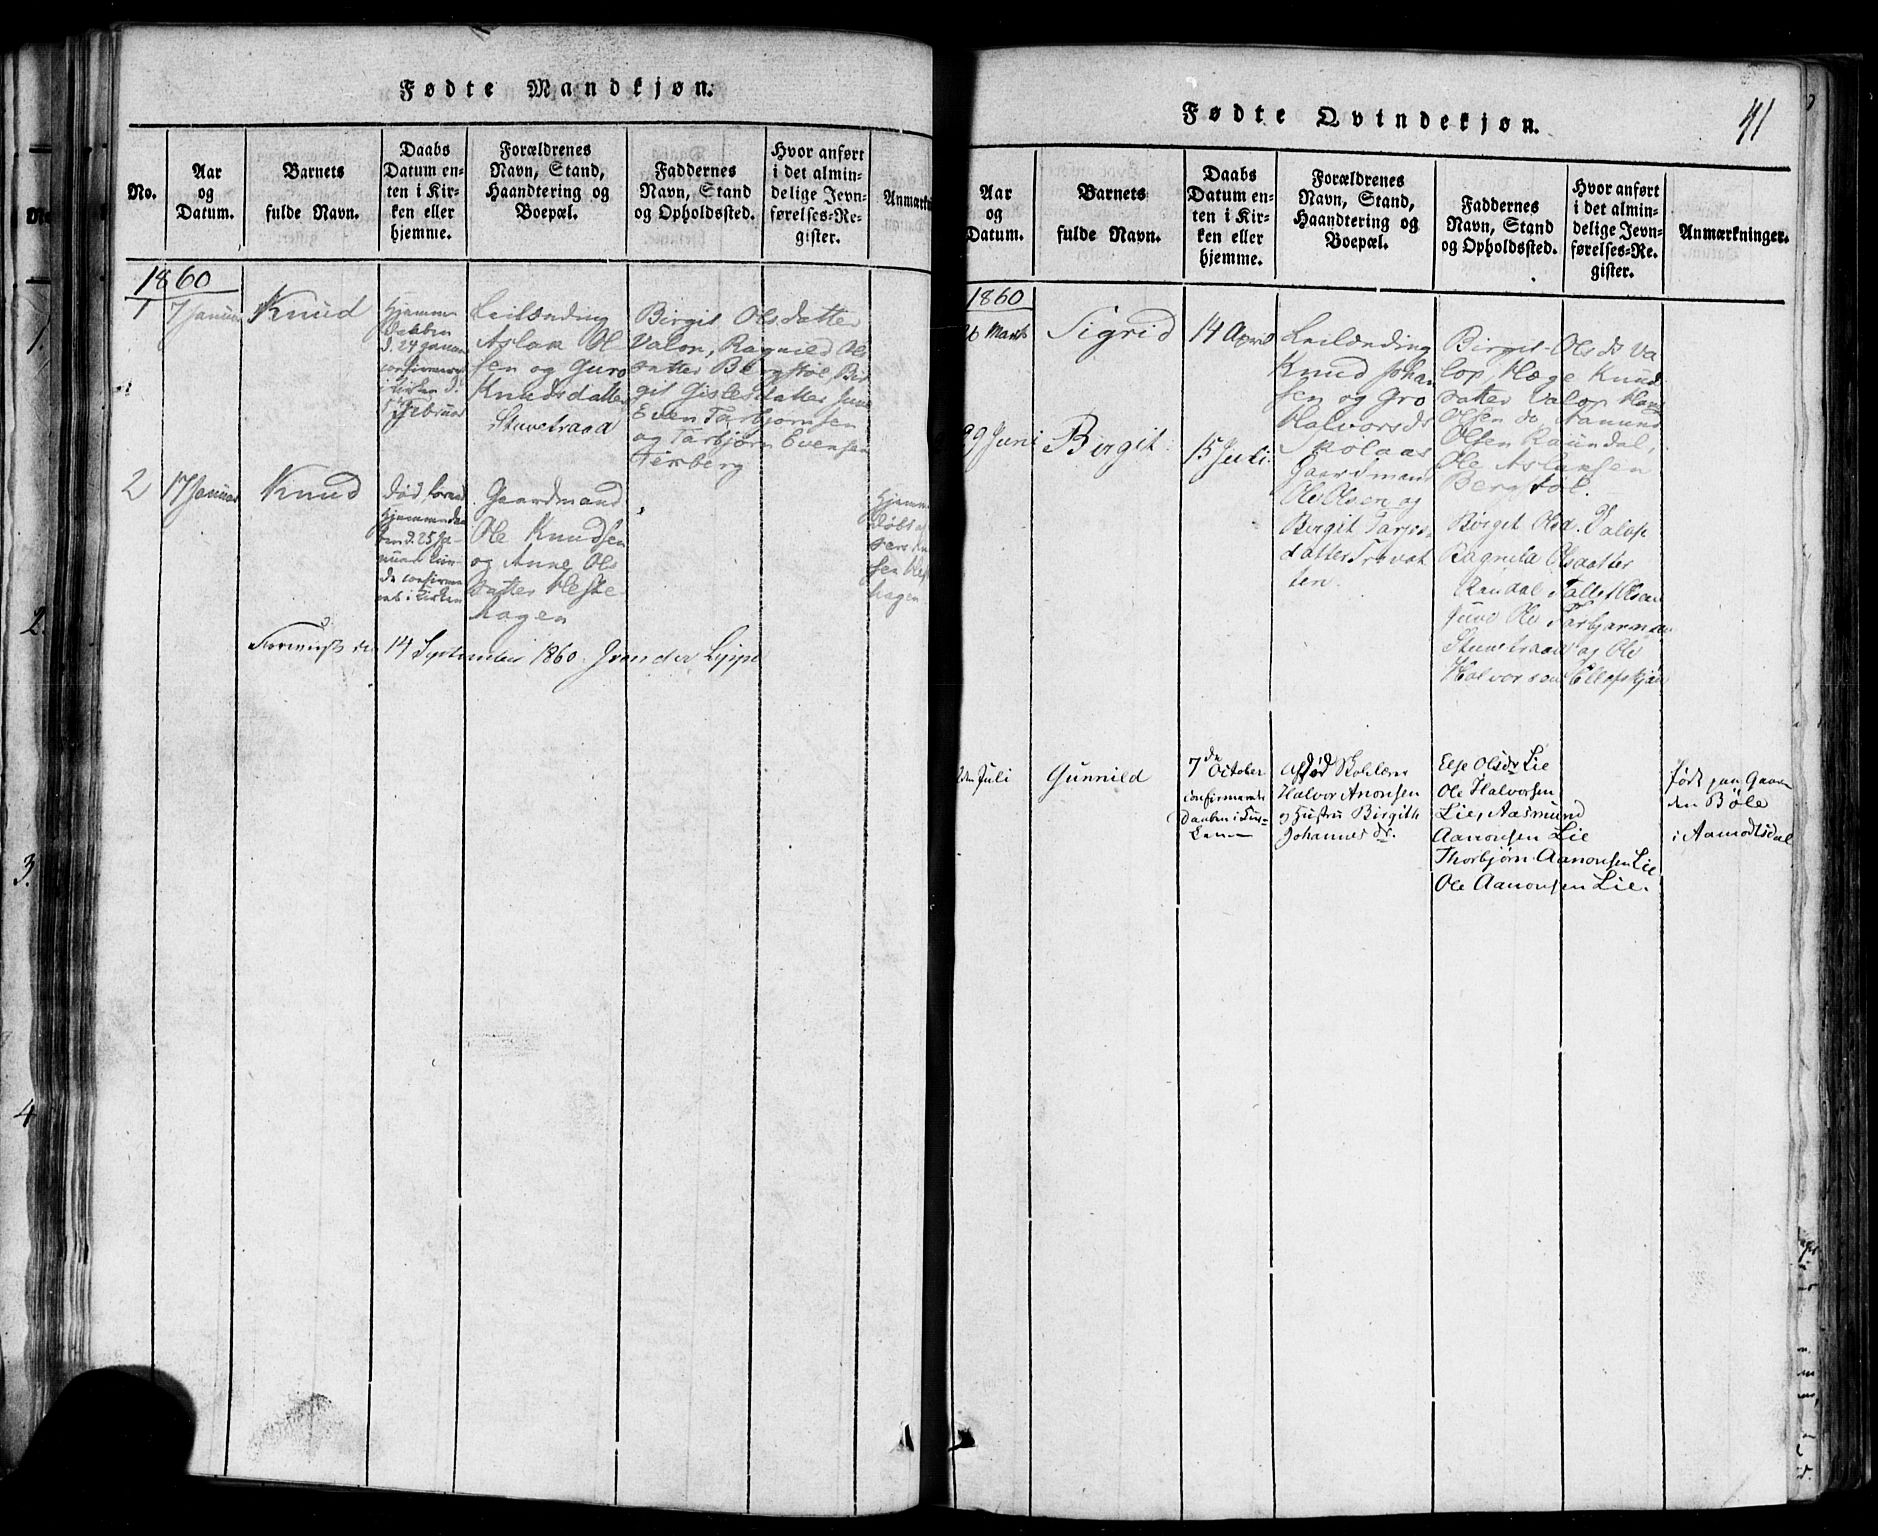 Fødte Mandkjøn.
No.
Aar
og
Datum.
Barnets
fulde Navn.
Daabs
Datum en-
ten i Kir-
ken eller
hjemme.
Forældrenes
Navn, Stand,
Haandtering og
Boepæl.
Faddernes
Navn, Stand
og Opholdssted.
Hvor anført
i det almin-
delige Jevn-
førelses-Re-
gister.
Anmærk
1860
1
7 Januar
Knud
Hjemme
Døbt
d. 24 Januar
confirmeret
i Kirken d.
Februar
Leilænding
Aslak Ol-
sen og Guro
Knudsdatter
Stuvetraad
Birgit Olsdatter
Valop, Ragnild Ols
datter Bergstøl, Bir
git Gislesdatter Juve
Even Tarbjørnsen
og Tarbjørn Evensen
2
17 Januar
Knud
Død
Hjemmedaa
ben d. 25 Ja-
nuar
confirme
ret i Kirken
Gaardmand
Ole Knudsen
og Anne Ols
datter Heste
hagen
Hjemme
døbt af
sen Hest
hagen
14 September 1860.
Fødte Qvindekjøn.
41
Aar
og
Datum.
Barnets
fulde Navn.
Daabs
Datum en-
ten i Kir-
ken eller
hjemme.
Forældrenes
Navn, Stand,
Haandtering og
Boepæl.
Faddernes
Navn, Stand
og Opholdssted.
Hvor anført
i det almin-
delige Jevn-
førelses-Re-
gister.
Anmærkninger.
1860
26 Marts
Sigrid
14 April
Leilænding
Knud Johan
sen og Gro
Halvorsdr
Skolaas
Birgit Olsdr Va
lop, Hæge Knud
datter Valop, Hans
Olsen do Aamund
Olsen Raundal,
Ole Aslaksen
Bergstøl.
29 Juni
Birgit
15 Juli
Gaardmand
Ole Olsen og
Birgit Tarjes-
datter Trovat
ten.
Birgit Olsd. Valop
Ragnild Olsdatter
Raundal Tallef Olsen
Juve Ole Tarbjørnsen
Stuvetraad og Ole
Halvorsen
Juli
Gunnild
7de October
confirmerede
Daaben i Kir-
ken
afdød Skolelærer
Halvor Anonsen
og Hustru Birgith
Johannesdr.
Else Olsdr Lie
Ole Halvorsen
Lie, Aasmund
Aanonsen Lie
Thorbjørn Aanonsen Lie
Ole Aanonsen Lie.
født paa Gaar
den Bøle
i Aamodtsdal
1.
2.
3.
4